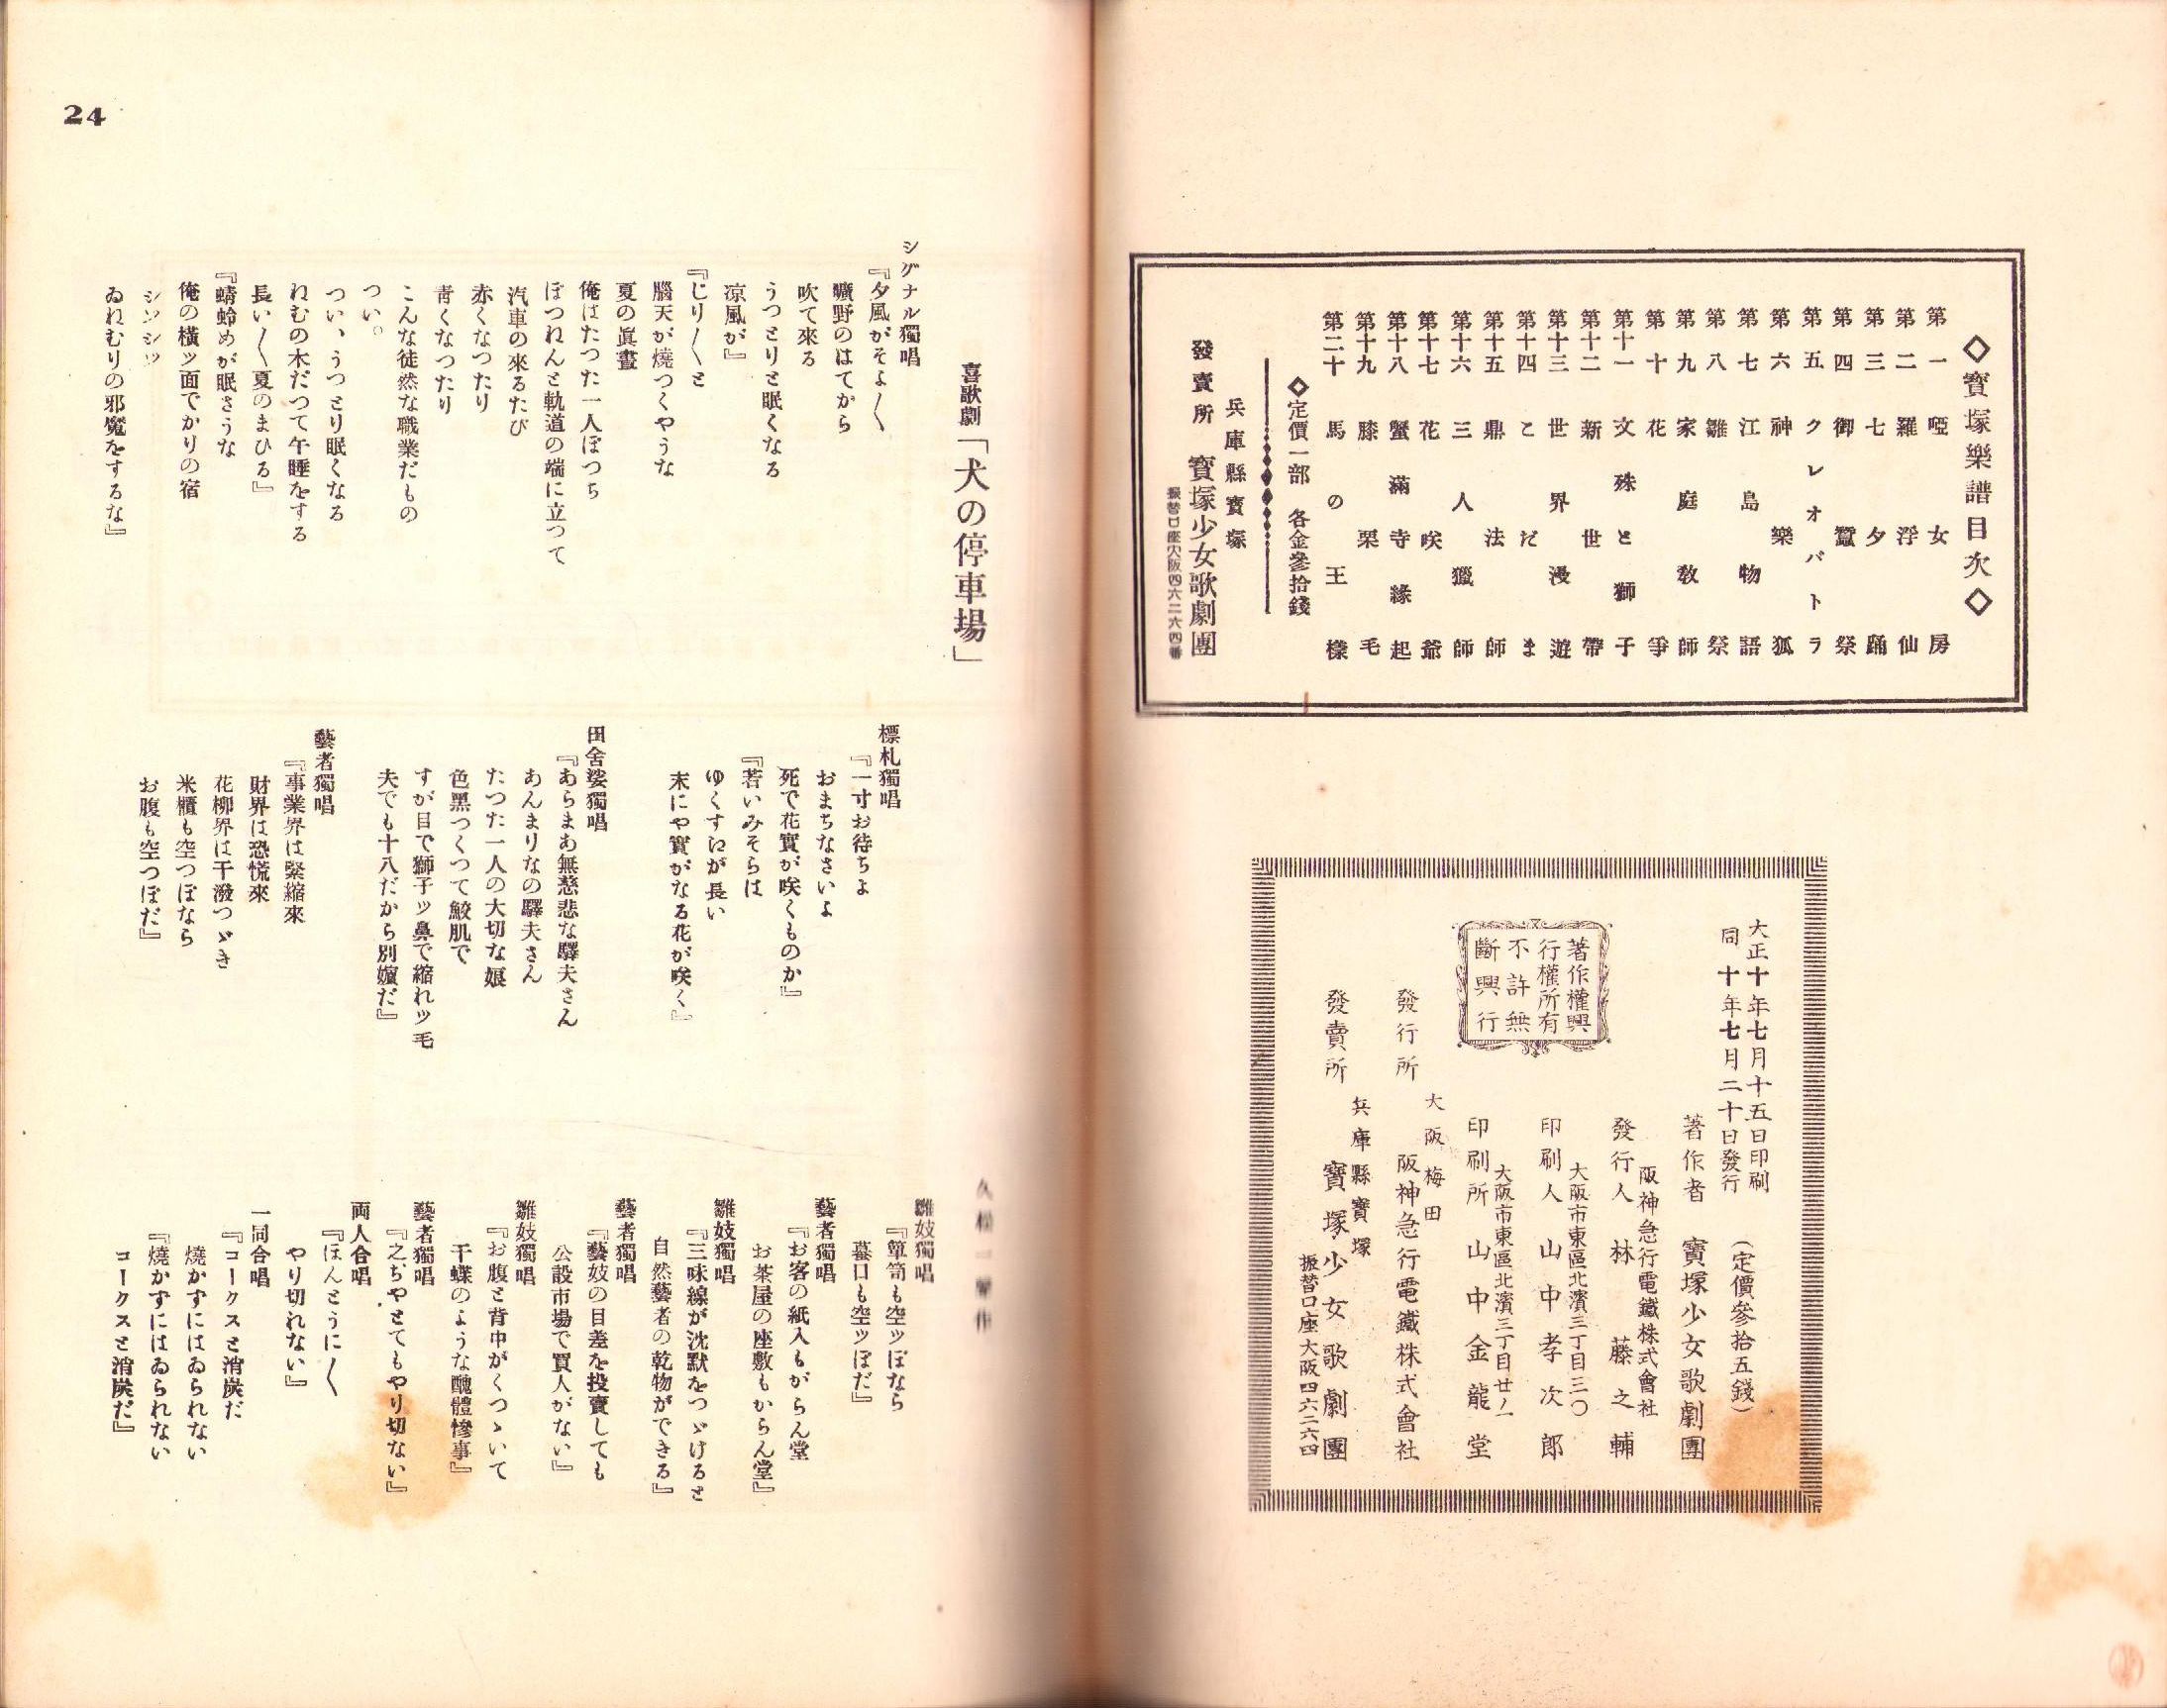 ◇寶塚樂譜目次◇
第一 啞女房
第二 羅浮仙
第三 七夕踊
第四 御蠶祭
第五 クレオパトラ
第六 神樂狐
第七 江島物語
第八 雛祭
第九 家庭教師
第十 花爭
第十一 文殊と獅子
第十二 新世帶
第十三 世界漫遊
第十四 こだま
第十五 鼎法師
第十六 三人獵師
第十七 花咲爺
第十八 蟹滿寺緣起
第十九 膝栗毛
第二十 馬の王樣
◇定價一部 各金參拾錢
兵庫縣寶塚
發賣所 寶塚少女歌劇團
振替口座大阪四六二六四番
大正十年七月十五日印刷
同 十年七月二十日發行
(定價參拾五錢)
著作權興
行權所有
不許無
斷興行
著作者 寶塚少女歌劇團
阪神急行電鐵株式會社
發行人 林藤之輔
大阪市東區北濱三丁目三〇
印刷人 山中孝次郎
大阪市東區北濱三丁目廿ノ一
印刷所 山中金龍堂
大阪梅田
發行所 阪神急行電鐵株式會社
兵庫縣寶塚
發賣所 寶塚少女歌劇團
振替口座大阪四六二六四
24
喜歌劇「犬の停車場」
シグナル獨唱
『夕風がそよ〱
曠野のはてから
吹て來る
うつとりと眠くなる
凉風が』
『じり〱と
腦天が燒つくやうな
夏の眞晝
俺はたつた一人ぼつち
ぽつねんと軌道の端に立つて
汽車の來るたび
赤くなつたり
青くなつたり
こんな徒然な職業だもの
つい。
つい、うつとり眠くなる
ねむの木だつて午睡をする
長い〱夏のまひる』
『蜻蛉めが眠さうな
俺の橫ッ面でかりの宿
シッシッ
ゐねむりの邪魔をするな』
標札獨唱
『一寸お待ちよ
おまちなさいよ
死で花實が咲くものか』
『若いみそらは
ゆくすゑが長い
末にや實がなる花が咲く』
田舍娑獨唱
『あらまあ無慈悲な驛夫さん
あんまりなの驛夫さん
たつた一人の大切な娘
色黑つくつて鮫肌で
すが目で獅子ッ鼻で縮れッ毛
夫でも十八だから別嬪だ』
藝者獨唱
『事業界は緊縮來
財界は恐慌來
花柳界は干潑つゞき
米櫃も空つぽなら
お腹も空つぽだ』
雛妓獨唱
『簞笥も空ッぽなら
蟇口も空ッぽだ』
藝者獨唱
『お客の紙入もがらん堂
お茶屋の座敷もからん堂』
雛妓獨唱
『三味線が沈默をつゞけると
自然藝者の乾物ができる』
藝者獨唱
『藝妓の目差を投賣しても
公設市場で買人がない』
雛妓獨唱
『お腹と背中がくつゝいて
干蝶のような醜體慘事』
藝者獨唱
『之ぢやとてもやり切ない』
両人合唱
『ほんとうに〱
やり切れない』
一同合唱
『コークスと消炭だ
燒かずにはゐられない
『燒かずにはゐられない
コークスと消炭だ』